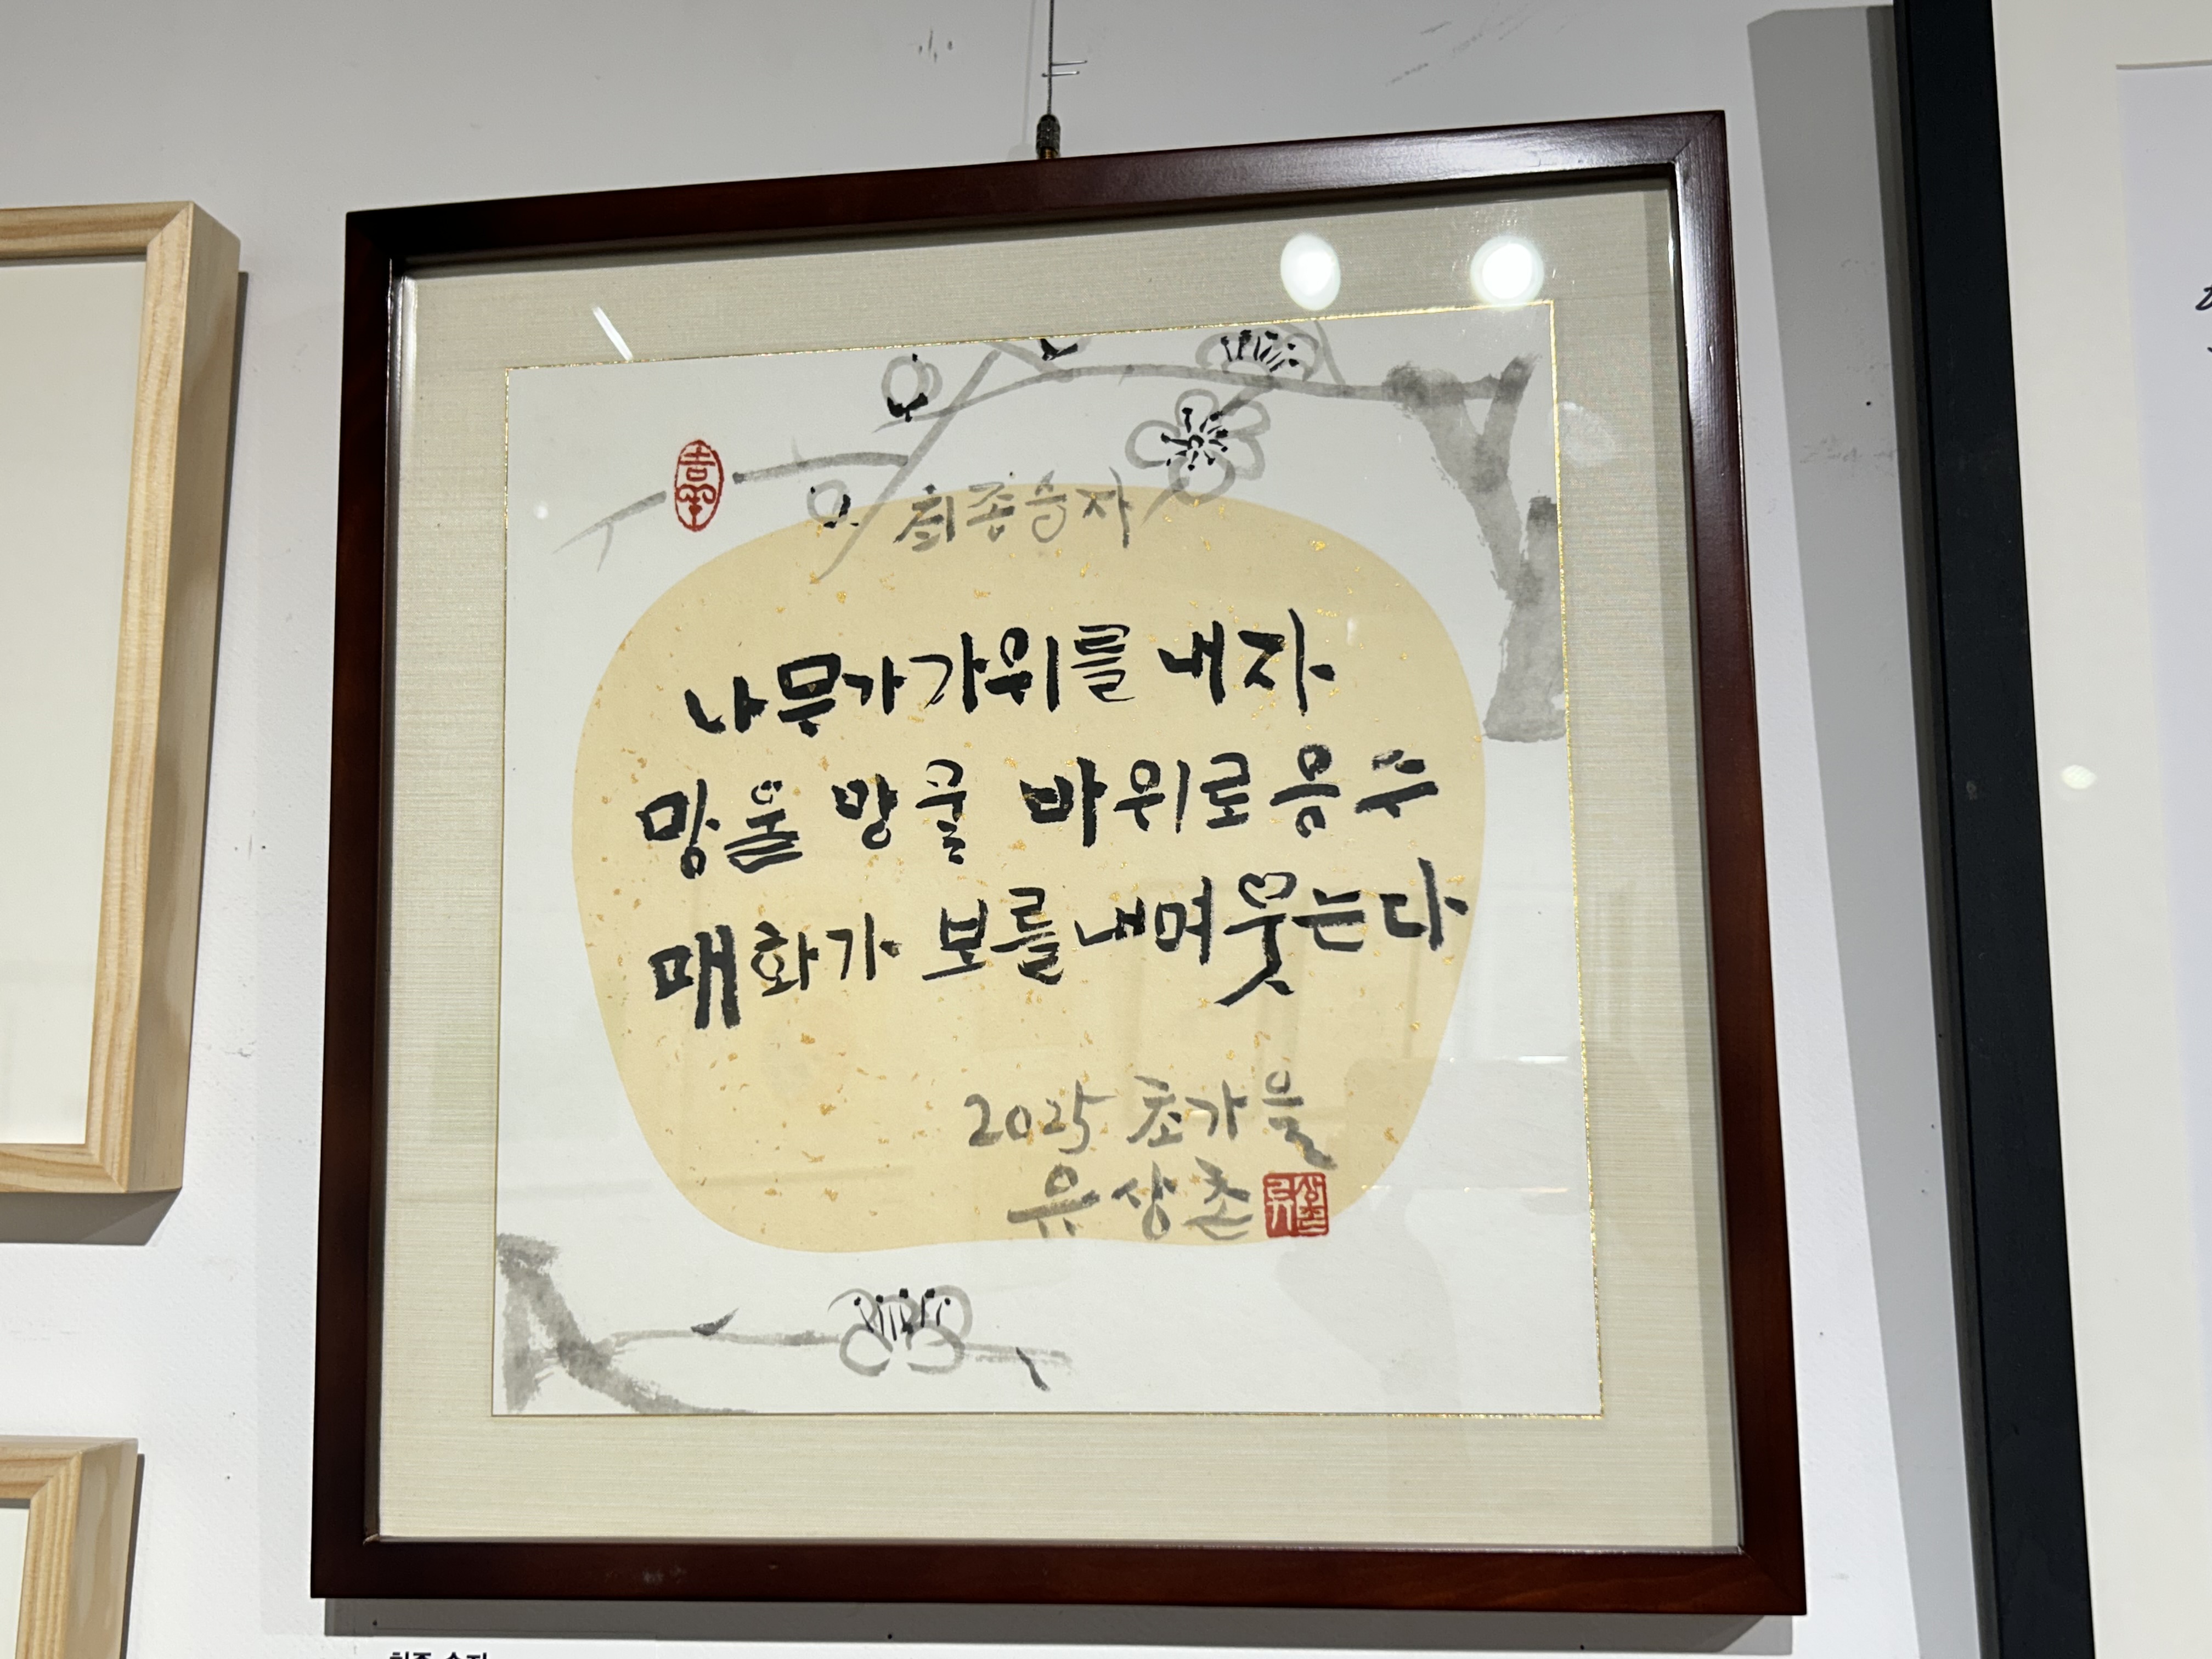 최종승자
나무가 가위를 내자
망울 망울 바위로 응수
매화가 보를 내며 웃는다
2025 초가을
유상촌
최종 승자